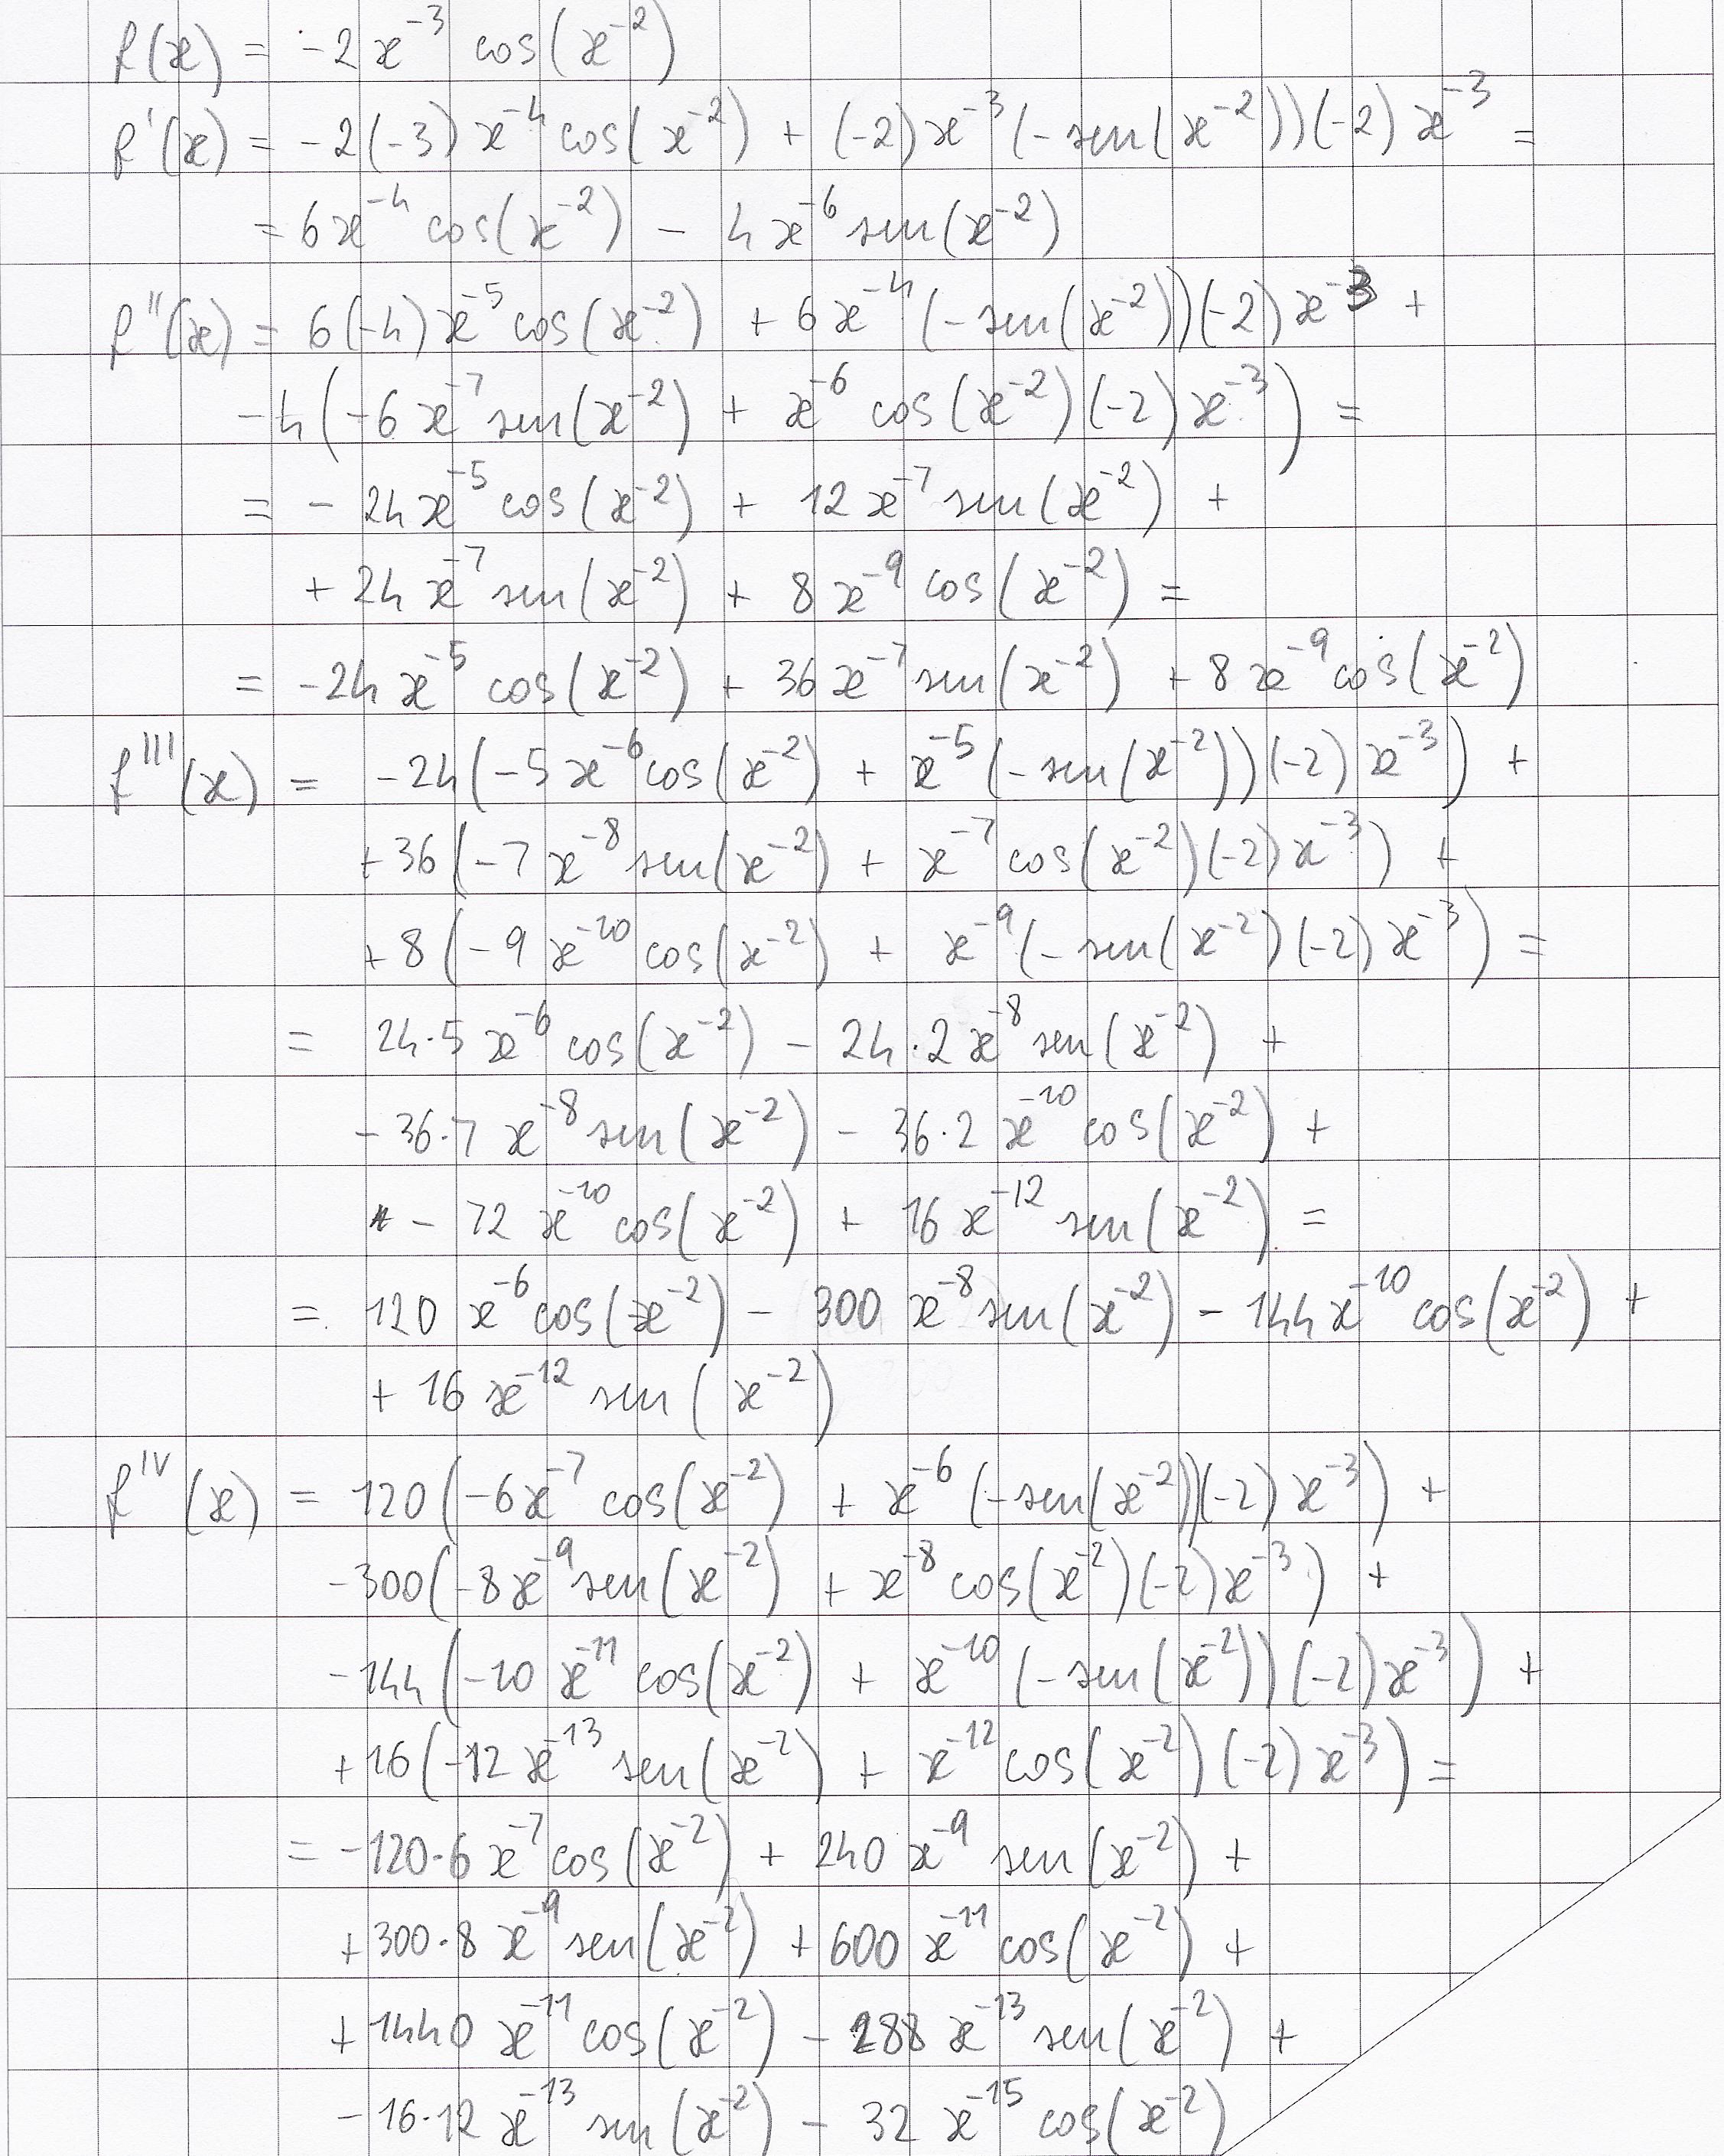 f(x) = -2x⁻³ cos(x⁻²)
f'(x) = -2(-3)x⁻⁴cos(x⁻²) + (-2)x⁻³(-sen(x⁻²))(-2)x⁻³ =
= 6x⁻⁴ cos(x⁻²) - 4x⁻⁶ sen(x⁻²)
f''(x) = 6(-4)x⁻⁵cos(x⁻²) + 6x⁻⁴(-sen(x⁻²))(-2)x⁻³ +
-4(-6x⁻⁷sen(x⁻²) + x⁻⁶ cos(x⁻²)(-2)x⁻³) =
= -24x⁻⁵cos(x⁻²) + 12x⁻⁷sen(x⁻²) +
+24x⁻⁷sen(x⁻²) + 8x⁻⁹ cos(x⁻²) =
= -24x⁻⁵ cos(x⁻²) + 36x⁻⁷sen(x⁻²) + 8x⁻⁹cos(x⁻²)
f'''(x) = -24(-5x⁻⁶cos(x⁻²) + x⁻⁵(-sen(x⁻²))(-2)x⁻³) +
+36(-7x⁻⁸sen(x⁻²) + x⁻⁷cos(x⁻²)(-2)x⁻³) +
+8(-9x⁻¹⁰cos(x⁻²) + x⁻⁹(-sen(x⁻²)(-2)x⁻³) =
= 24·5x⁻⁶cos(x⁻²) - 24·2x⁻⁸ sen(x⁻²) +
-36·7x⁻⁸sen(x⁻²) - 36·2x⁻¹⁰cos(x⁻²) +
-72x⁻¹⁰cos(x⁻²) + 16x⁻¹²sen(x⁻²) =
= 120x⁻⁶cos(x⁻²) - 300x⁻⁸sen(x⁻²) - 144x⁻¹⁰cos(x⁻²) +
+16x⁻¹² sen(x⁻²)
fᴵⱽ(x) = 120(-6x⁻⁷ cos(x⁻²) + x⁻⁶(-sen(x⁻²))(-2)x⁻³) +
-300(-8x⁻⁹sen(x⁻²) + x⁻⁸cos(x⁻²)(-2)x⁻³) +
-144(-10x⁻¹¹ cos(x⁻²) + x⁻¹⁰(-sen(x⁻²))(-2)x⁻³) +
+16(-12x⁻¹³ sen(x⁻²) + x⁻¹²cos(x⁻²)(-2)x⁻³) =
= -120·6x⁻⁷cos(x⁻²) + 240x⁻⁹ sen(x⁻²) +
+300·8x⁻⁹sen(x⁻²) + 600x⁻¹¹cos(x⁻²) +
+1440x⁻¹¹cos(x⁻²) - 288x⁻¹³sen(x⁻²) +
-16·12x⁻¹³sen(x⁻²) - 32x⁻¹⁵cos(x⁻²)